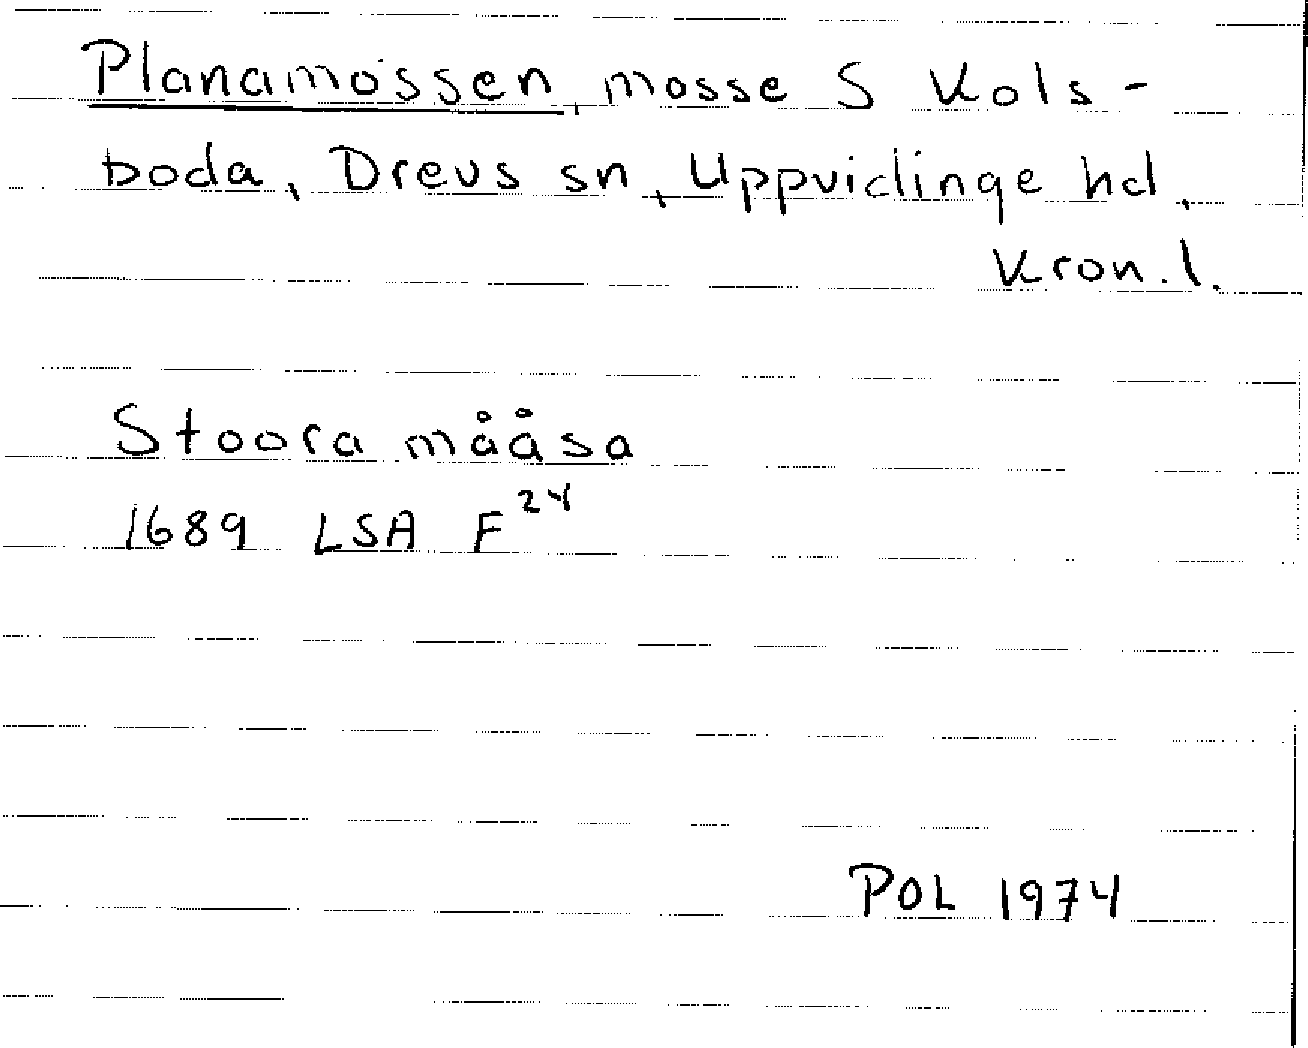 Planamossen, mosse S Kols-
boda, Drevs sn, Uppvidinge hd,
Kron. l.
Stoora mååsa
1689 LSA F 24
POL 1974